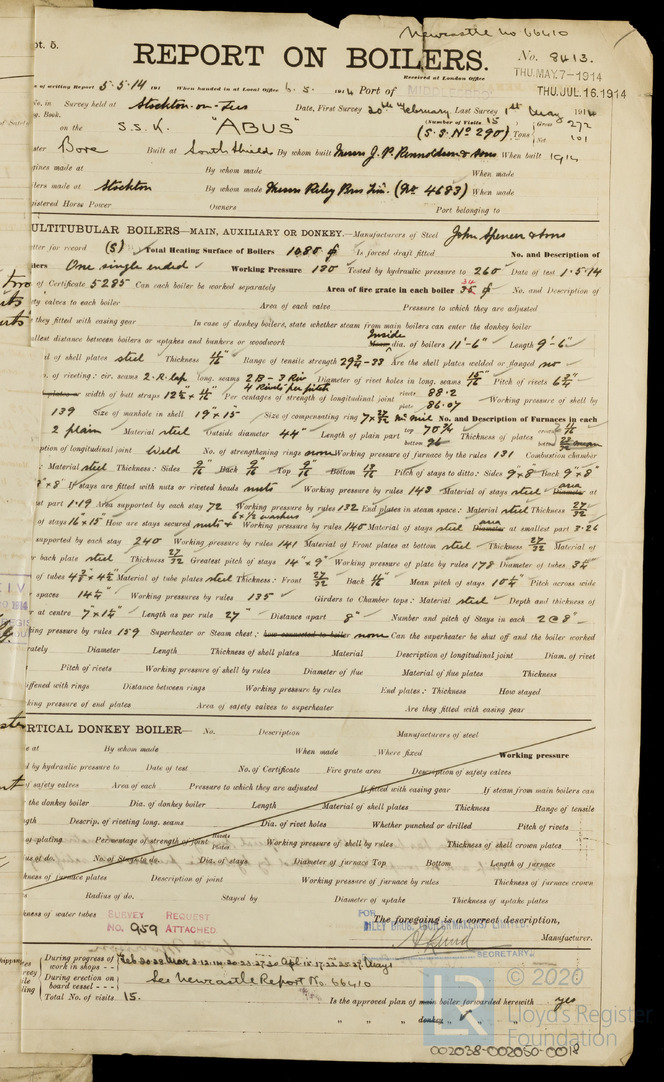 Newcastle No 66410
pt. 5.
REPORT ON BOILERS.
No. 8413.
Received at London Office
THU. MAY. 7-1914
THU. JUL. 16. 1914
of writing Report 5.5.14 191 When handed in at Local Office 6.5. 1914 Port of MIDDLESBRO
No. in Survey held at Stockton-on-Tees Date, First Survey 20th February Last Survey 1st May 1914
g. Book.
(Number of Visits 15)
on the S.S.K. "ABUS" (S.S. No 290) Tons Gross 272 Net 101
ster Bore Built at South Shields By whom built Messrs J. P. Rennoldson & Sons When built 1914
gines made at By whom made When made
lers made at Stockton By whom made Messrs Riley Bros Lim. (No 4683) When made
gistered Horse Power Owners Port belonging to
ULTITUBULAR BOILERS—MAIN, AUXILIARY OR DONKEY.—Manufacturers of Steel John Spencer & Sons
tter for record (S) Total Heating Surface of Boilers 1080 Is forced draft fitted No. and Description of
lers One single ended Working Pressure 130 Tested by hydraulic pressure to 260 Date of test 1.5.14
of Certificate 5285 Can each boiler be worked separately Area of fire grate in each boiler 34 No. and Description of
ety valves to each boiler Area of each valve Pressure to which they are adjusted
they fitted with easing gear In case of donkey boilers, state whether steam from main boilers can enter the donkey boiler
allest distance between boilers or uptakes and bunkers or woodwork Inside dia. of boilers 11'-6" Length 9'-6"
l of shell plates steel Thickness 11/16 Range of tensile strength 29¾-33 Are the shell plates welded or flanged no
. of riveting: cir. seams 2.R.lap long. seams 2B-3Riv Diameter of rivet holes in long. seams 15/16 Pitch of rivets 6¾"
4 Rivets per pitch
width of butt straps 12½" x 11/16" Per centages of strength of longitudinal joint rivets 88.2 plate 86.07 Working pressure of shell by
139 Size of manhole in shell 19" x 15" Size of compensating ring 7 x 31/32 No. and Description of Furnaces in each
2 plain Material steel Outside diameter 44" Length of plain part top 70¾ bottom Thickness of plates
ption of longitudinal joint Weld No. of strengthening rings none Working pressure of furnace by the rules 131 Combustion chamber
: Material steel Thickness: Sides 9/16 Back 9/16 Top 9/16 Bottom Pitch of stays to ditto: Sides 9" x 8" Back 9" x 8"
x 8" If stays are fitted with nuts or riveted heads nuts Working pressure by rules 143 Material of stays steel area at
st part 1.19 Area supported by each stay 72 Working pressure by rules 132 End plates in steam space: Material steel Thickness 27/32
of stays 16 x 15" How are stays secured nuts & washers Working pressure by rules 140 Material of stays steel area at smallest part 3.26
supported by each stay 240 Working pressure by rules 141 Material of Front plates at bottom steel Thickness 27/32 Material of
r back plate steel Thickness 27/32 Greatest pitch of stays 14" x 9" Working pressure of plate by rules 178 Diameter of tubes 3¼
of tubes 4⅞ x 4½ Material of tube plates steel Thickness: Front 27/32 Back 11/16 Mean pitch of stays 10¼ Pitch across wide
spaces 14¼" Working pressures by rules 135 Girders to Chamber tops: Material steel Depth and thickness of
r at centre 7" x 1¼" Length as per rule 27" Distance apart 8" Number and pitch of Stays in each 2 @ 8"
ing pressure by rules 159 Superheater or Steam chest; how connected to boiler none Can the superheater be shut off and the boiler worked
rately Diameter Length Thickness of shell plates Material Description of longitudinal joint Diam. of rivet
Pitch of rivets Working pressure of shell by rules Diameter of flue Material of flue plates Thickness
iffened with rings Distance between rings Working pressure by rules End plates: Thickness How stayed
king pressure of end plates Area of safety valves to superheater Are they fitted with easing gear
RTICAL DONKEY BOILER— No. Description Manufacturers of steel
e at By whom made When made Where fixed Working pressure
d by hydraulic pressure to Date of test No. of Certificate Fire grate area Description of safety valves
f safety valves Area of each Pressure to which they are adjusted If fitted with easing gear If steam from main boilers can
the donkey boiler Dia. of donkey boiler Length Material of shell plates Thickness Range of tensile
gth Descrip. of riveting long. seams Dia. of rivet holes Whether punched or drilled Pitch of rivets
of plating Per centage of strength of joint Rivets Plates Working pressure of shell by rules Thickness of shell crown plates
us of do. No. of Stays to do. Dia. of stays Diameter of furnace Top Bottom Length of furnace
kness of furnace plates Description of joint Working pressure of furnace by rules Thickness of furnace crown
s Radius of do. Stayed by Diameter of uptake Thickness of uptake plates
kness of water tubes SURVEY REQUEST
NO. 959 ATTACHED
The foregoing is a correct description,
FOR RILEY BROS. (BOILERMAKERS) LIMITED.
Manufacturer.
SECRETARY.
During progress of work in shops - - Feb 20.28 Mar 3.12.14.20.23.27.30 Apl 15.17.22.25.27. May 1
During erection on board vessel - - - See Newcastle Report No. 66410
Total No. of visits 15.
Is the approved plan of main boiler forwarded herewith yes
" " " donkey " " "
© 2020
Lloyd's Register
Foundation
002038-002050-0018